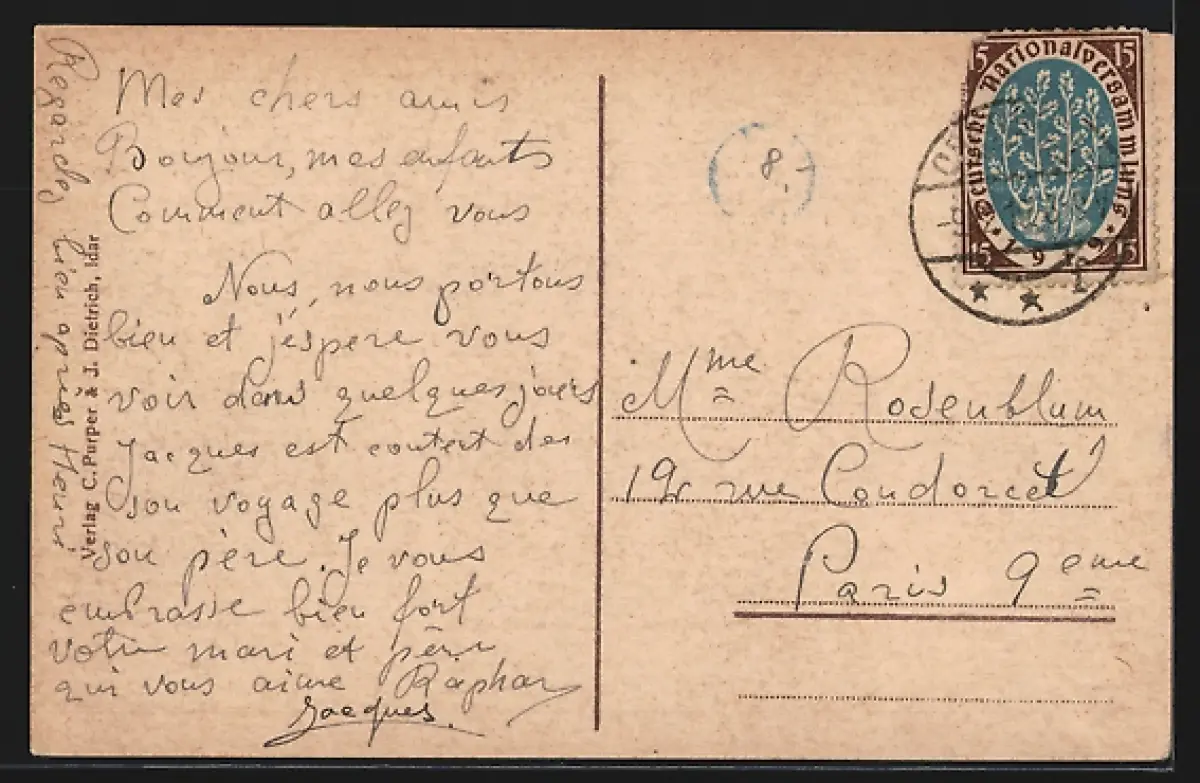 Mes chers amis
Bonjour, mes enfants
Comment allez vous
Nous, nous portons
bien et j'éspere vous
voir dans quelques jours
Jacques est content des
son voyage plus que
son père. Je vous
embrasse bien fort
votre mari et père
qui vous aime Raphaz
Jacques.
Regardez bien apres Henri
Verlag C. Purper & J. Dietrich, Idar
8,-
15 15
Deutsche Nationalversammlung
1919
15 15
Mme Rosenblum
19 rue Condorcet
Paris 9eme